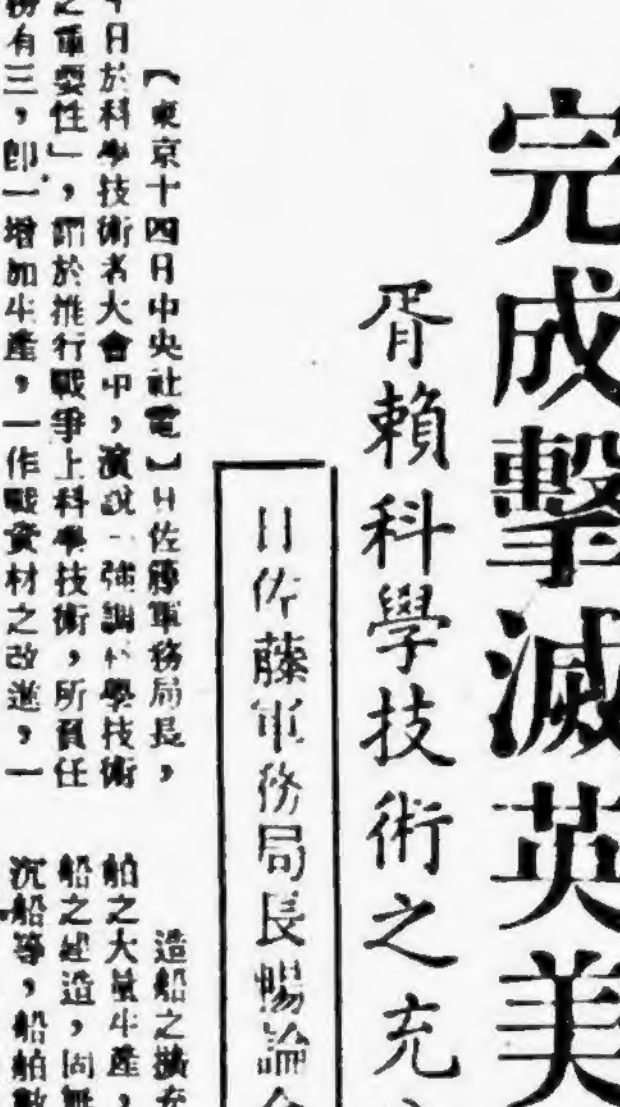 完成擊滅英美
胥賴科學技術之充
日佐藤軍務局長暢論
【東京十四日中央社電】日佐藤軍務局長，
日於科學技術者大會中，演說「強調科學技術
之重要性」，謂於推行戰爭上科學技術，所負任
務有三，即一增加生產，一作戰資材之改進，一
造船之擴充
舶之大量生產，
船之建造，固無
沉船等，船舶數